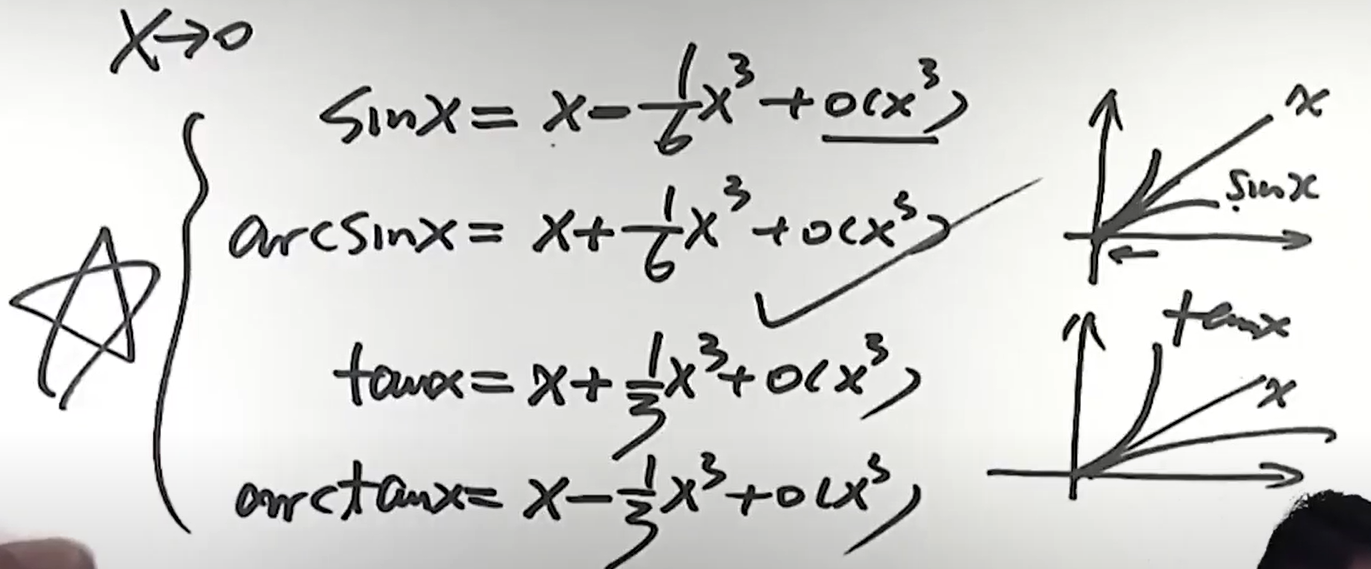 x→0
sinx = x - 1/6 x³ + o(x³)
arcsinx = x + 1/6 x³ + o(x³)
tanx = x + 1/3 x³ + o(x³)
arctanx = x - 1/3 x³ + o(x³)
x
sinx
tanx
x